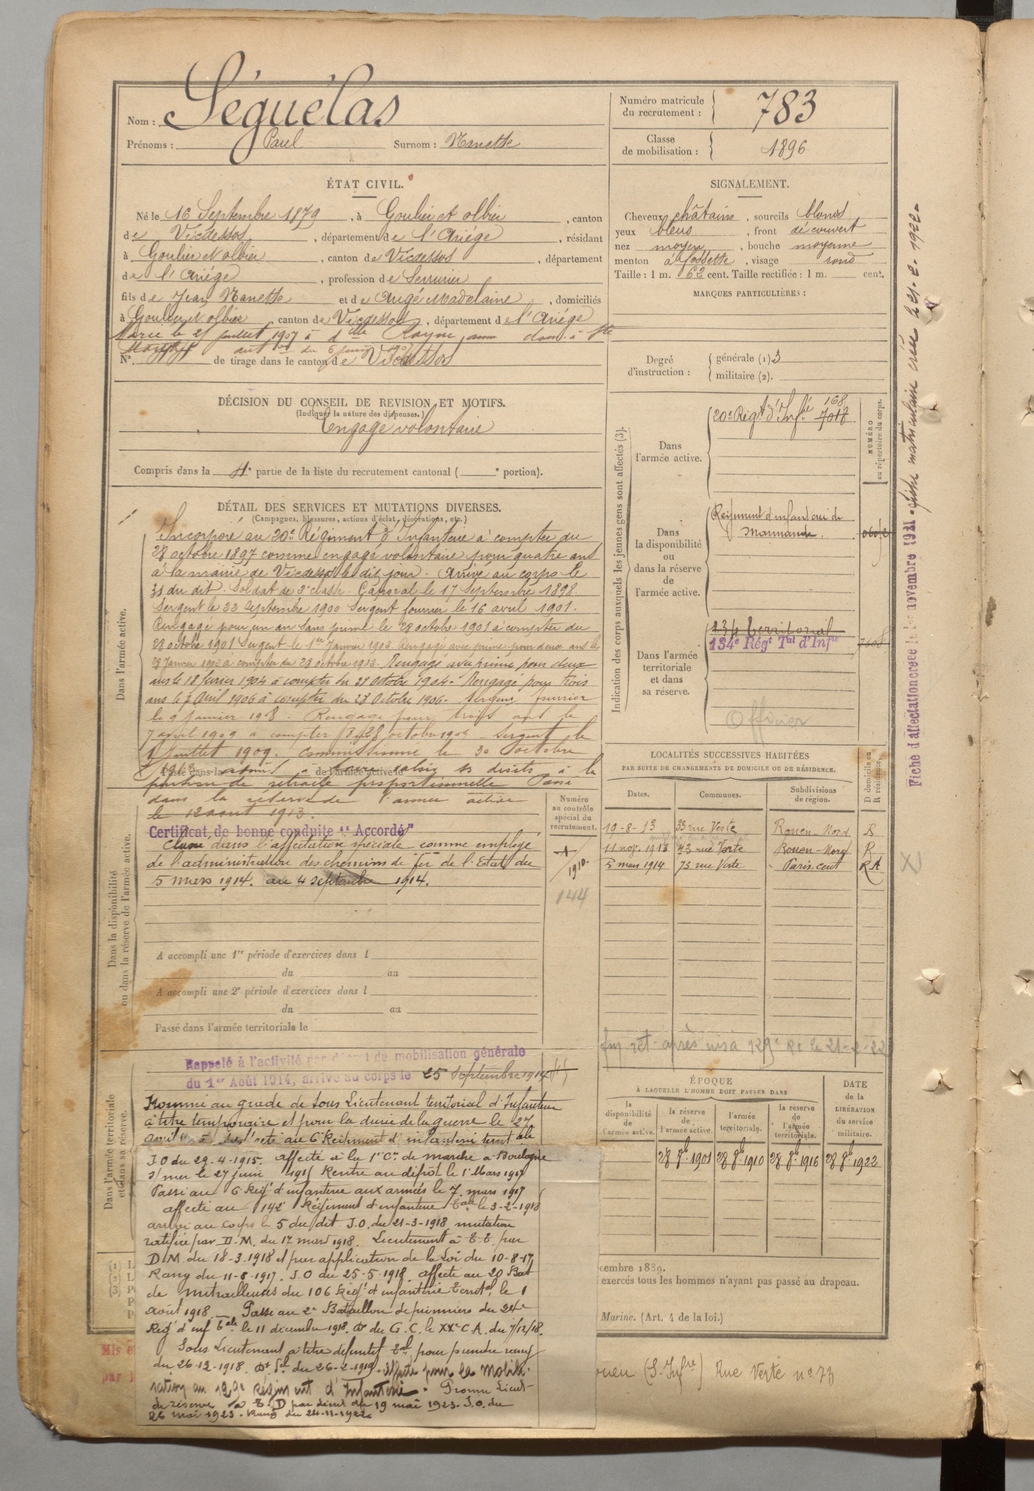 Nom : Séguélas
Prénoms : Paul Surnom : Nanette
Numéro matricule du recrutement : 783
Classe de mobilisation : 1896
ÉTAT CIVIL.
Né le 16 Septembre 1879, à Goulier et olbier, canton
de Vicdessos, département de l'Ariége, résidant
à Goulier et olbier, canton de Vicdessos, département
de l'Ariége, profession de Serrurier
fils de Jean Nanette et de Augé Madelaine, domiciliés
à Goulier et olbier, canton de Vicdessos, département de l'Ariége
Marié le 25 juillet 1907 à dlle Rayne
N° de tirage dans le canton de Vicdessos
SIGNALEMENT.
Cheveux châtains, sourcils blonds
yeux bleus, front découvert
nez moyen, bouche moyenne
menton à fossette, visage rond
Taille : 1 m. 62 cent. Taille rectifiée : 1 m. cent.
MARQUES PARTICULIÈRES :
Degré d'instruction : générale (1) 3
militaire (2).
DÉCISION DU CONSEIL DE REVISION ET MOTIFS.
(Indiquer la nature des dispenses.)
engagé volontaire
Compris dans la 4e partie de la liste du recrutement cantonal ( e portion).
DÉTAIL DES SERVICES ET MUTATIONS DIVERSES.
(Campagnes, blessures, actions d'éclat, décorations, etc.)
Dans l'armée active.
Incorporé au 20e Régiment d'Infanterie à compter du
28 octobre 1897 comme engagé volontaire pour quatre ans
à la mairie de Vicdessos le dit jour. Arrivé au corps le
31 du dit. Soldat de 2e classe. Caporal le 17 Septembre 1898.
Sergent le 23 Septembre 1900 Sergent fourrier le 16 avril 1901.
Rengagé pour un an sans prime le 28 octobre 1901 à compter du
28 octobre 1901 Sergent le 1er Janvier 1903. Rengagé avec prime pour deux ans le
Janvier 1903 à compter du 28 octobre 1902. Rengagé avec prime pour deux
ans le 18 février 1904 à compter du 28 octobre 1904. Rengagé pour trois
ans le 7 Avril 1906 à compter du 28 Octobre 1906. Sergent fourrier
le 9 janvier 1908. Rengagé pour trois ans le
7 avril 1909 à compter du 28 octobre 1909. Sergent le
Juillet 1909. Commissionné le 30 octobre
1912 admis à faire valoir ses droits à la
pension de retraite proportionnelle Passé
dans la réserve de l'armée active
le 12 août 1913.
Certificat de bonne conduite "Accordé"
Dans la disponibilité ou dans la réserve de l'armée active.
Classé dans l'affectation spéciale comme employé
de l'administration des chemins de fer de l'Etat du
5 mars 1914. au 4 septembre 1914.
A accompli une 1re période d'exercices dans l
du au
A accompli une 2e période d'exercices dans l
du au
Passé dans l'armée territoriale le
Numéro au contrôle spécial du recrutement.
1910.
144
Indication des corps auxquels les jeunes gens sont affectés (3).
Dans l'armée active.
20e Régt d'Infie 168 7018
Dans la disponibilité ou dans la réserve de l'armée active.
Régiment d'infanterie de
Marmande.
Dans l'armée territoriale et dans sa réserve.
134 territorial
134e Régt Tal d'Infie
Officier
NUMÉRO au répertoire du corps.
LOCALITÉS SUCCESSIVES HABITÉES
PAR SUITE DE CHANGEMENTS DE DOMICILE OU DE RÉSIDENCE.
Dates. Communes. Subdivisions de région. D domicile ou R résidence.
19-8-13 33 rue Verte Rouen-Nord R
11 nov. 1913 73 rue Verte Rouen-Nord R
5 mars 1914 73 rue Verte Paris cent RA
ÉPOQUE
À LAQUELLE L'HOMME DOIT PASSER DANS
la disponibilité de l'armée active. la réserve de l'armée active. l'armée territoriale. la réserve de l'armée territoriale.
DATE DE LA LIBÉRATION du service militaire.
28 8bre 1901 28 8bre 1910 28 8bre 1916 28 8bre 1922
Dans l'armée territoriale et dans sa réserve.
Rappelé à l'activité par décret de mobilisation générale
du 1er Août 1914, arrivé au corps le 25 Septembre 1914
Nommé au grade de Sous Lieutenant territorial d'Infanterie
à titre temporaire et pour la durée de la guerre le 27
avril affecté au 6 Régiment d'infanterie territoriale
J.O du 29-4-1915. affecté à la 1re Cie de marche à Boulogne
s/ mer le 27 juin 1915 Rentré au dépôt le 1 Mars 1917
Passé au 6 Régt d'infanterie aux armées le 7 mars 1917
affecté au 142 Régiment d'infanterie tale le 3-2-1918
arrivé au corps le 5 du dit J.O. du 21-3-1918 mutation
ratifiée par D.M. du 17 mars 1918. Lieutenant à T.T. par
D.M. du 18-3-1918 et par application de la Loi du 10-8-17
Rang du 11-8-1917. J.O du 25-5-1918. affecté au 20 Bat
de mitrailleuses du 106 Régt d'infanterie Territ. le 1
août 1918 Passé au 2e Bataillon de pionniers du 24e
Régt d'inf tale le 11 décembre 1918. On du G.C. le XXe C A. du 7/12/18.
Sous Lieutenant à titre définitif tal pour prendre rang
du 26-12-1918. du 26-2-1919. affecté pour la Mobili-
sation au 129e régiment d'Infanterie. Promu Lieut-
de réserve à T.D par décret du 19 mai 1923. J.O. du
26 mai 1923. Rang du 24-11-1922
cembre 1889.
exercés tous les hommes n'ayant pas passé au drapeau.
Marine. (Art. 4 de la loi.)
Rue Verte no 73
Fiche d'affectation créée le 1er novembre 1921. fiche matriculaire créée le 21-2-1922.